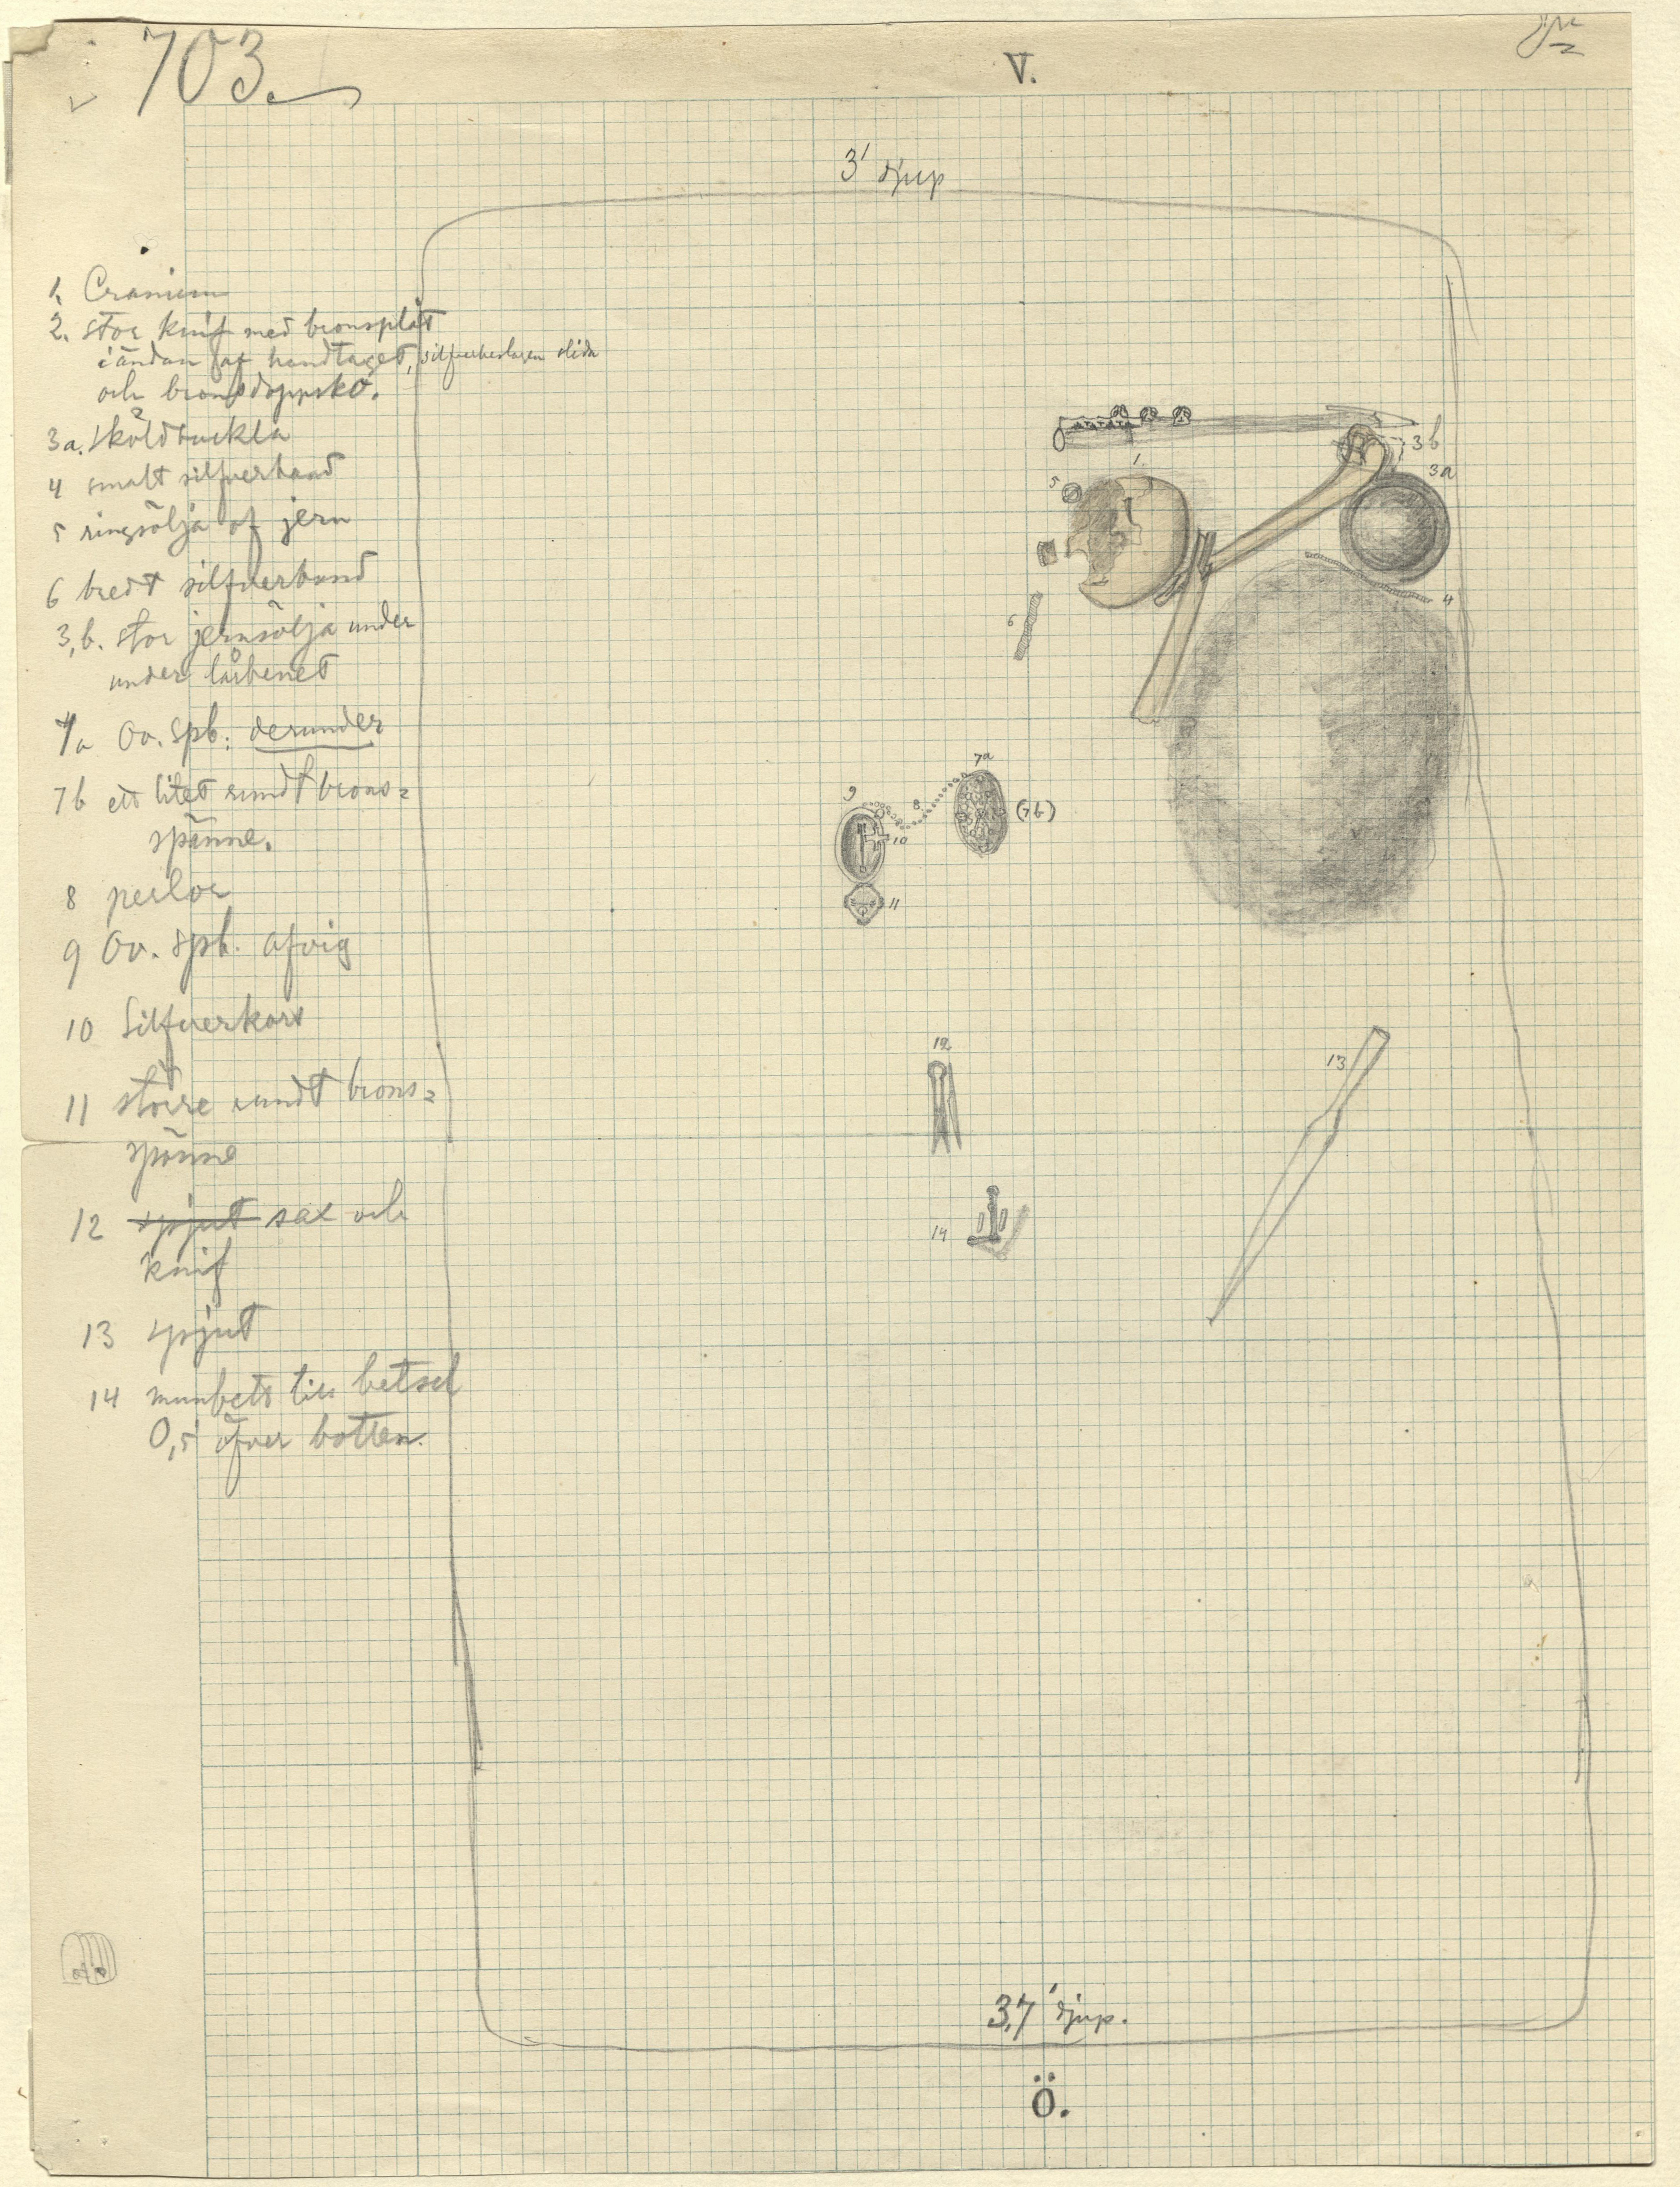 703.
V.
3' djup
1. Cranium
2. stor knif med bronsplåt
i ändan af handtaget, silfverbeslagen slida
och bronsdoppsko.
3a. Sköldbuckla
4 smalt silfverband
5 ringsölja af jern
6 bredt silfverband
3,b. stor jernsölja under
under lårbenet
7a Ov. spb: derunder
7b ett litet rundt brons=
spänne.
8 perlor
9 Ov. spb. afvig
10 Silfverkors
11 större rundt brons=
spänne
12 spjut sax och
knif
13 spjut
14 munbett till betsel
0,5' öfver botten.
3b
1.
3a
5
4
6
7a
9
8
(7b)
10
11
12
13
14
3,7' djup.
Ö.